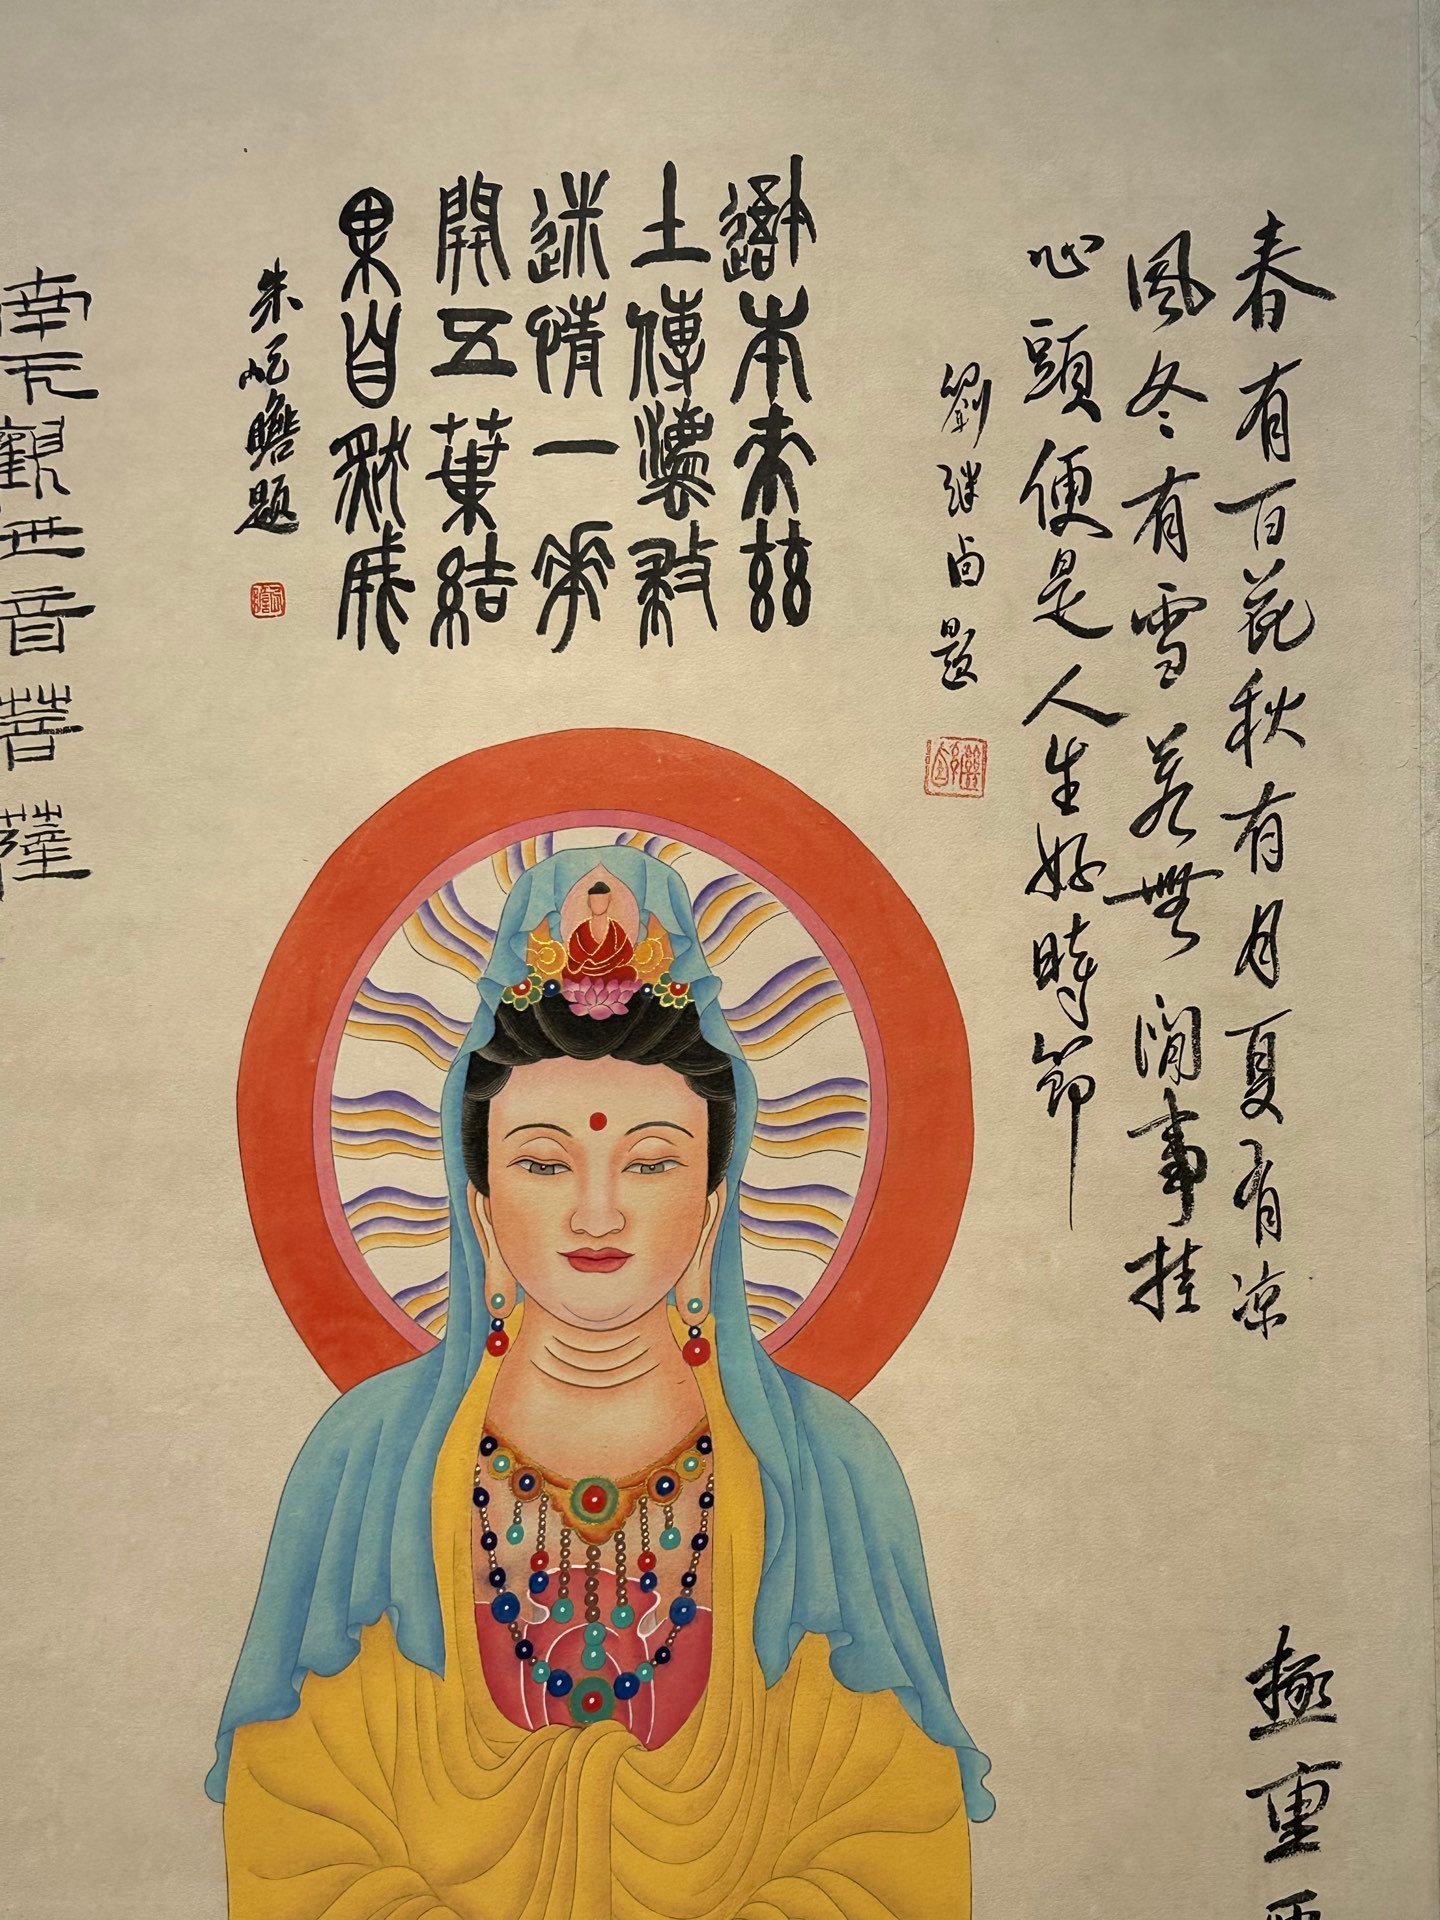 春有百花秋有月夏有凉
風冬有雪若無閒事挂
心頭便是人生好時節
劉继卣題
吾本來茲
土傳灋救
迷情一華
開五葉結
果自然成
朱屺瞻題
南无觀世音菩薩
極重